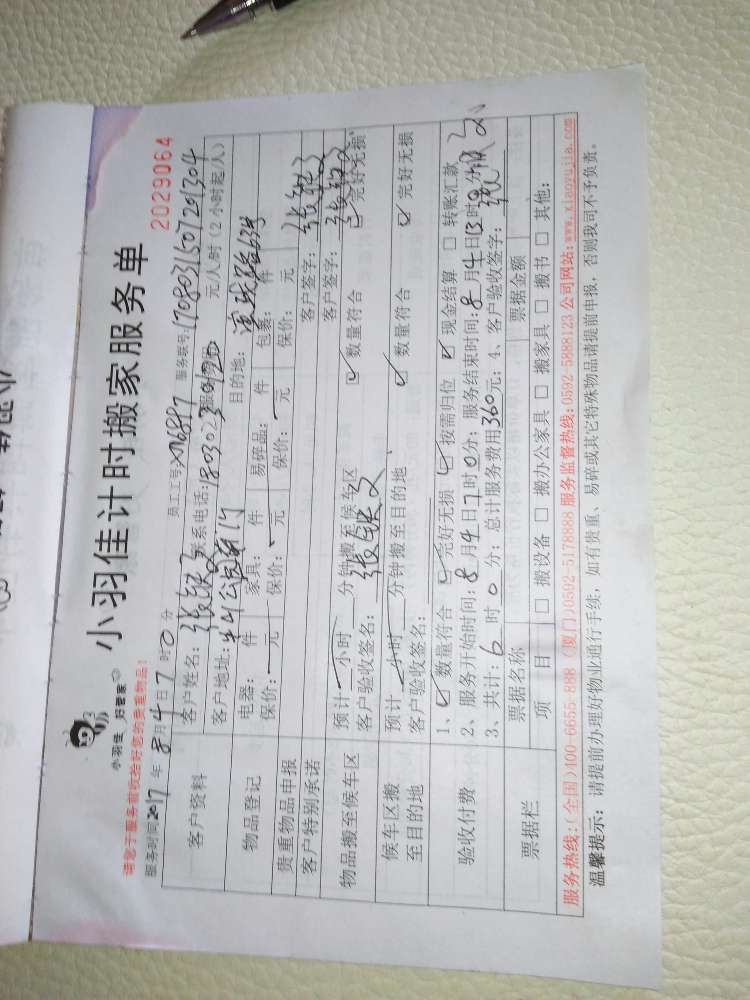 小羽佳计时搬家服务单
小羽佳 好管家
请您于服务前收拾好您的贵重物品!
2029064
服务时间2017年8月4日7时0分 员工工号: 服务联号:170803150729
客户资料
客户姓名: 联系电话: 元/人/时(2小时起/人)
客户地址: 目的地:
物品登记
电器: 件 家具: 件 易碎品: 件 包裹: 件
保价: 元 保价: 元 保价: 元 保价: 元
贵重物品申报 客户签字:
客户特别承诺 客户签字:
物品搬至候车区
预计 小时 分钟搬至候车区 ☑ 数量符合 ☑ 完好无损
客户验收签名:
候车区搬至目的地
预计 小时 分钟搬至目的地 ☑ 数量符合 ☑ 完好无损
客户验收签名:
验收付费
1、☑ 数量符合 ☑ 完好无损 ☑ 按需归位 ☑ 现金结算 □ 转账汇款
2、服务开始时间:8月4日7时0分; 服务结束时间:8月4日13时0分
3、共计:6时0分; 总计服务费用360元; 4、客户验收签字:
票据栏
票据名称 票据金额
项目 □ 搬设备 □ 搬办公家具 □ 搬家具 □ 搬书 □ 其他:
服务热线:(全国)400-6655-888 (厦门)0592-5178888 服务监督热线:0592-5888123 公司网站:www.xiaoyujia.com
温馨提示: 请提前办理好物业通行手续, 如有贵重、易碎或其它特殊物品请提前申报, 否则我司不予负责。